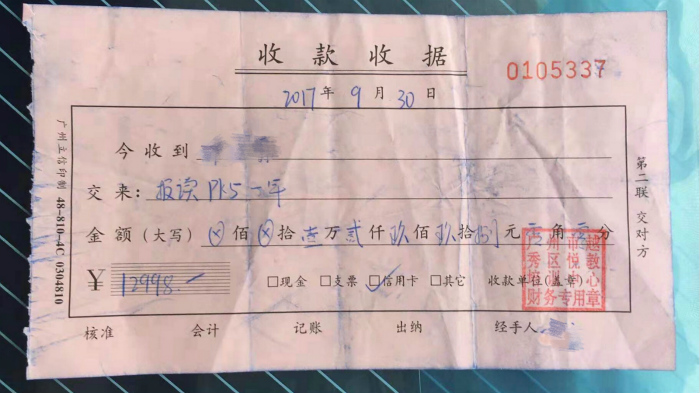 收款收据
0105337
2017年9月30日
今收到
交来:报读PK5一年
金额(大写)⊗佰⊗拾壹万贰仟玖佰玖拾捌元零角零分
¥12998
□现金 □支票 ☑信用卡 □其它 收款单位(盖章)
广州市越
秀区悦教
心
财务专用章
核准 会计 记账 出纳 经手人
第二联 交对方
广州立信印制 48-810-4C 0304810